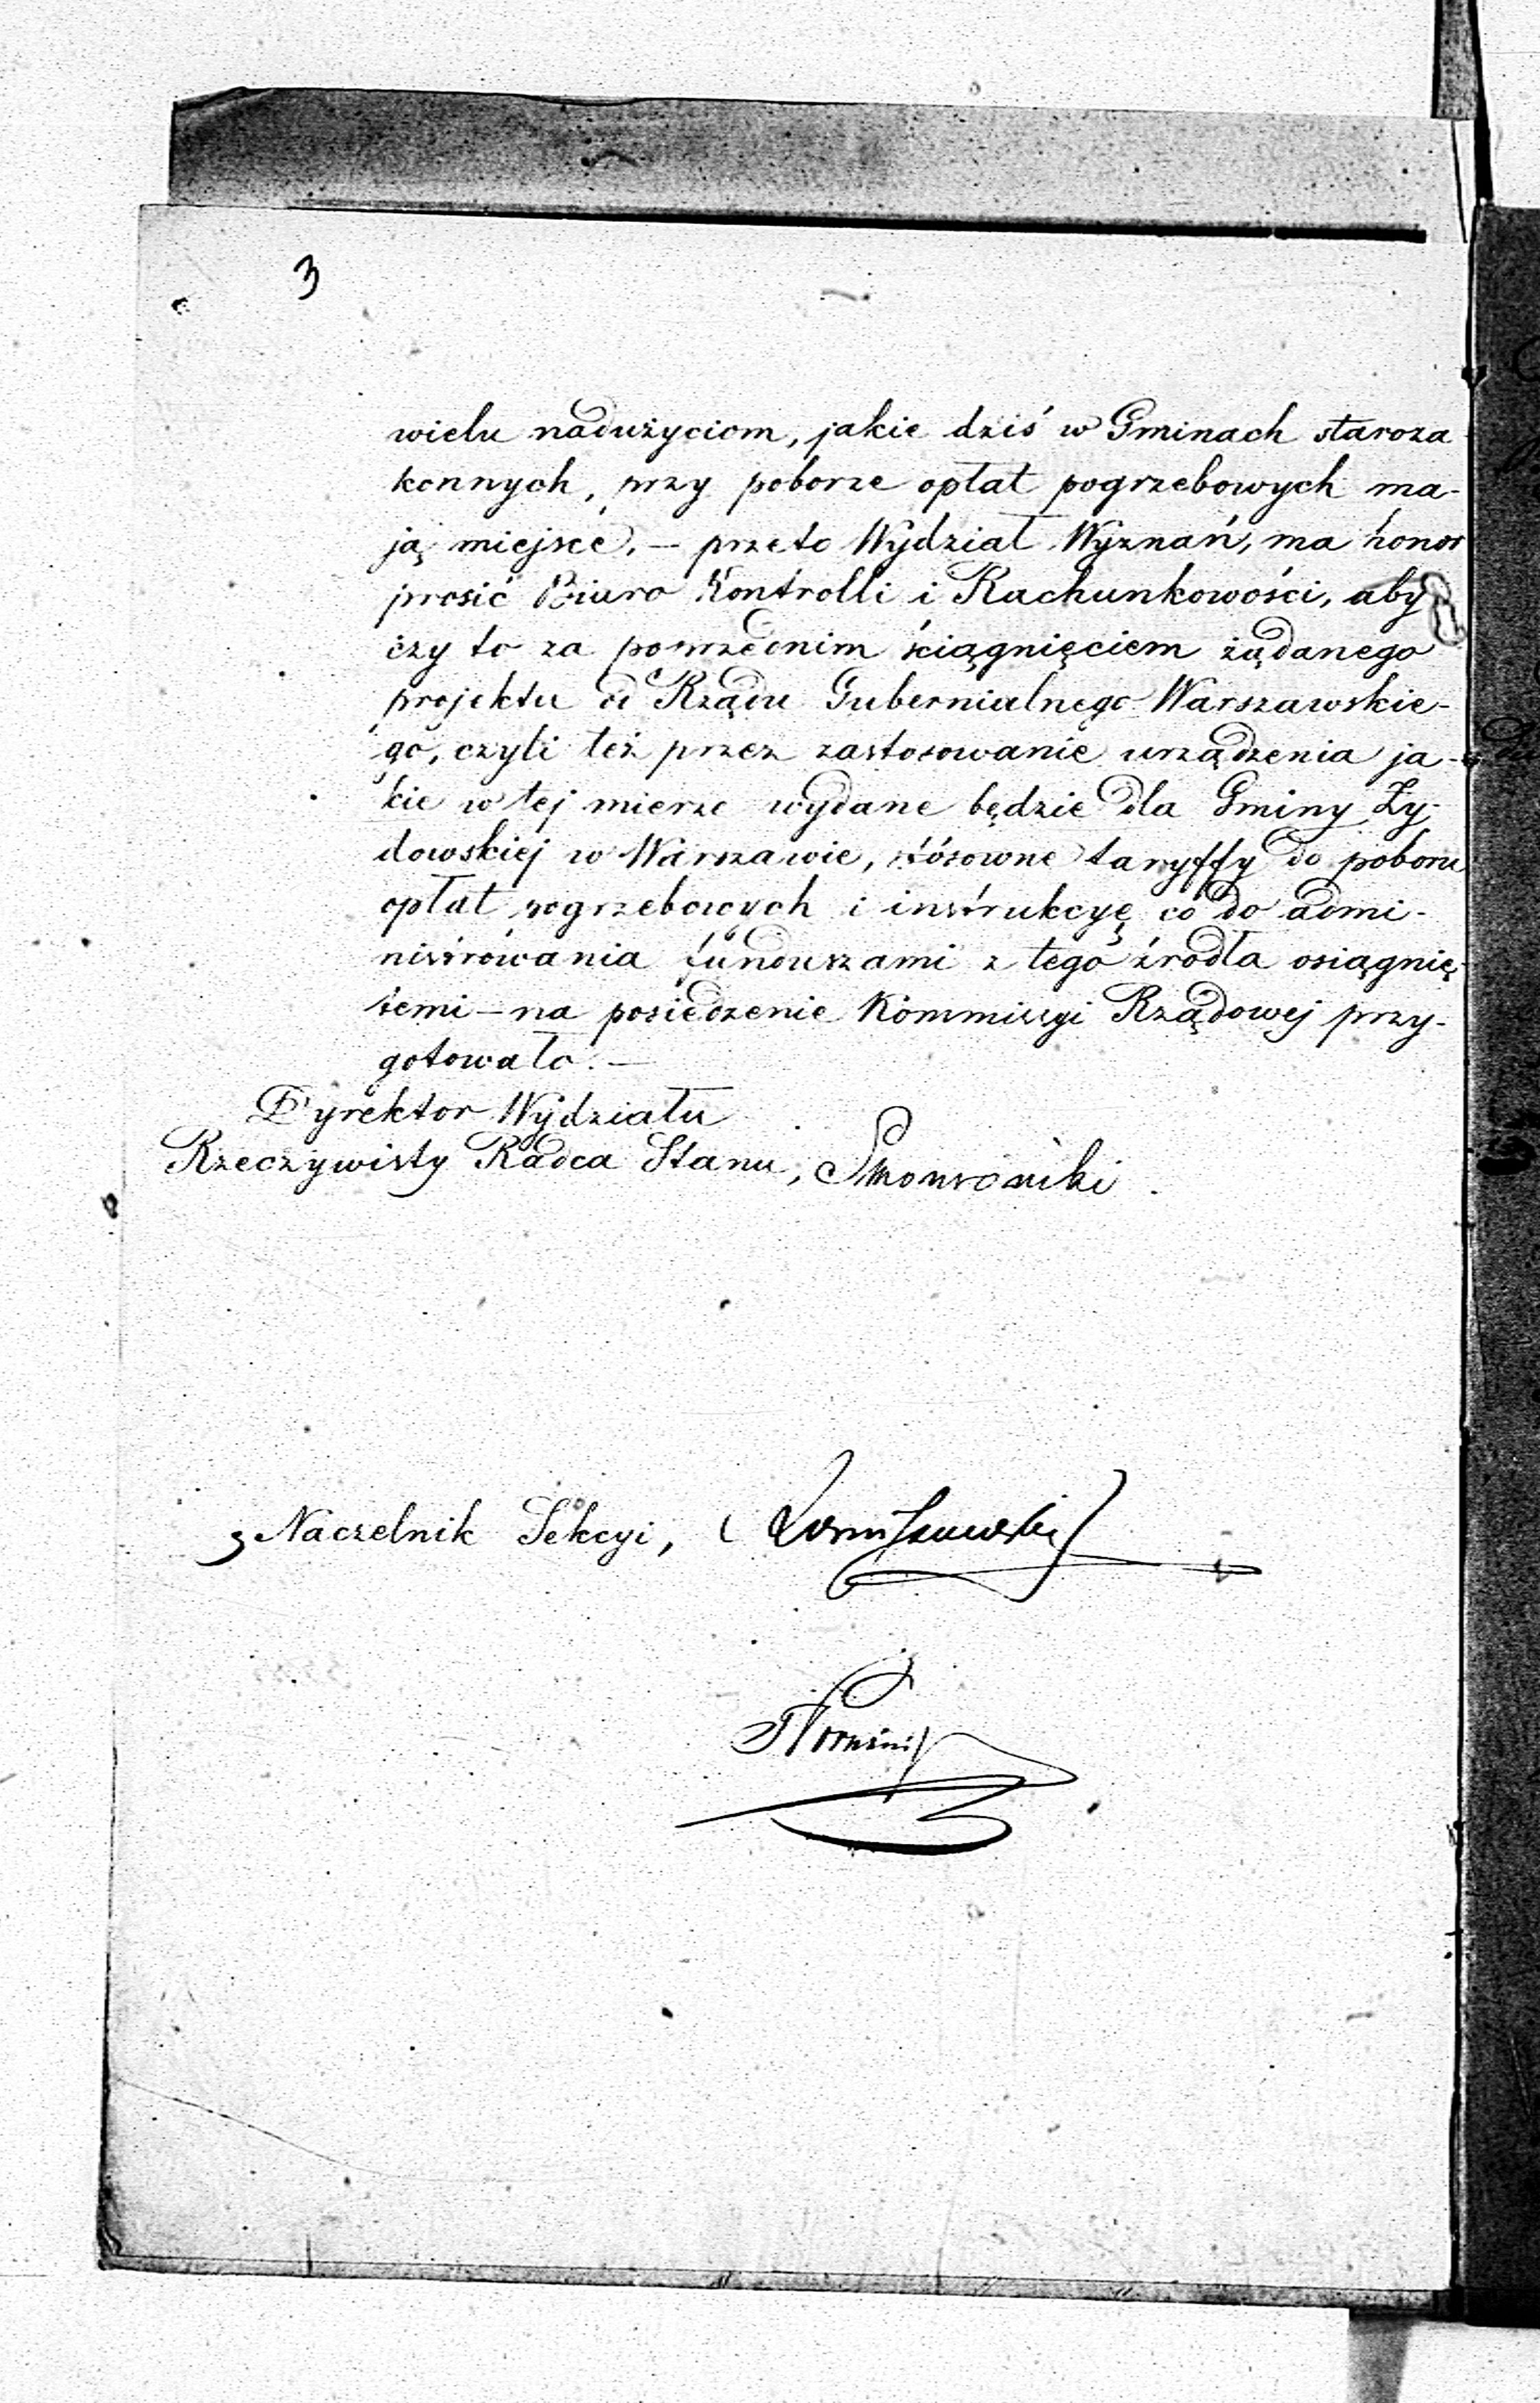 3
wielu nadużyciom, jakie dziś w Gminach staroza
konnych, przy poborze opłat pogrzebowych ma-
ją miejsce, — przeto Wydział Wyznań, ma honor
prosić Biuro Kontrolli i Rachunkowości, aby
czy to za poprzednim ściągnięciem żądanego
projektu od Rządu Gubernialnego Warszawskie-
go, czyli też przez zastosowanie urządzenia ja-
kie w tej mierze wydane będzie dla Gminy Ży-
dowskiej w Warszawie, stósowne taryffy do poboru
opłat pogrzebowych i instrukcyę co do admi-
nistrowania funduszami z tego źrodła osiągnię-
temi — na posiedzenie Kommissyi Rządowej przy-
gotowało. —
Dyrektor Wydziału
Rzeczywisty Radca Stanu,
Naczelnik Sekcyi,